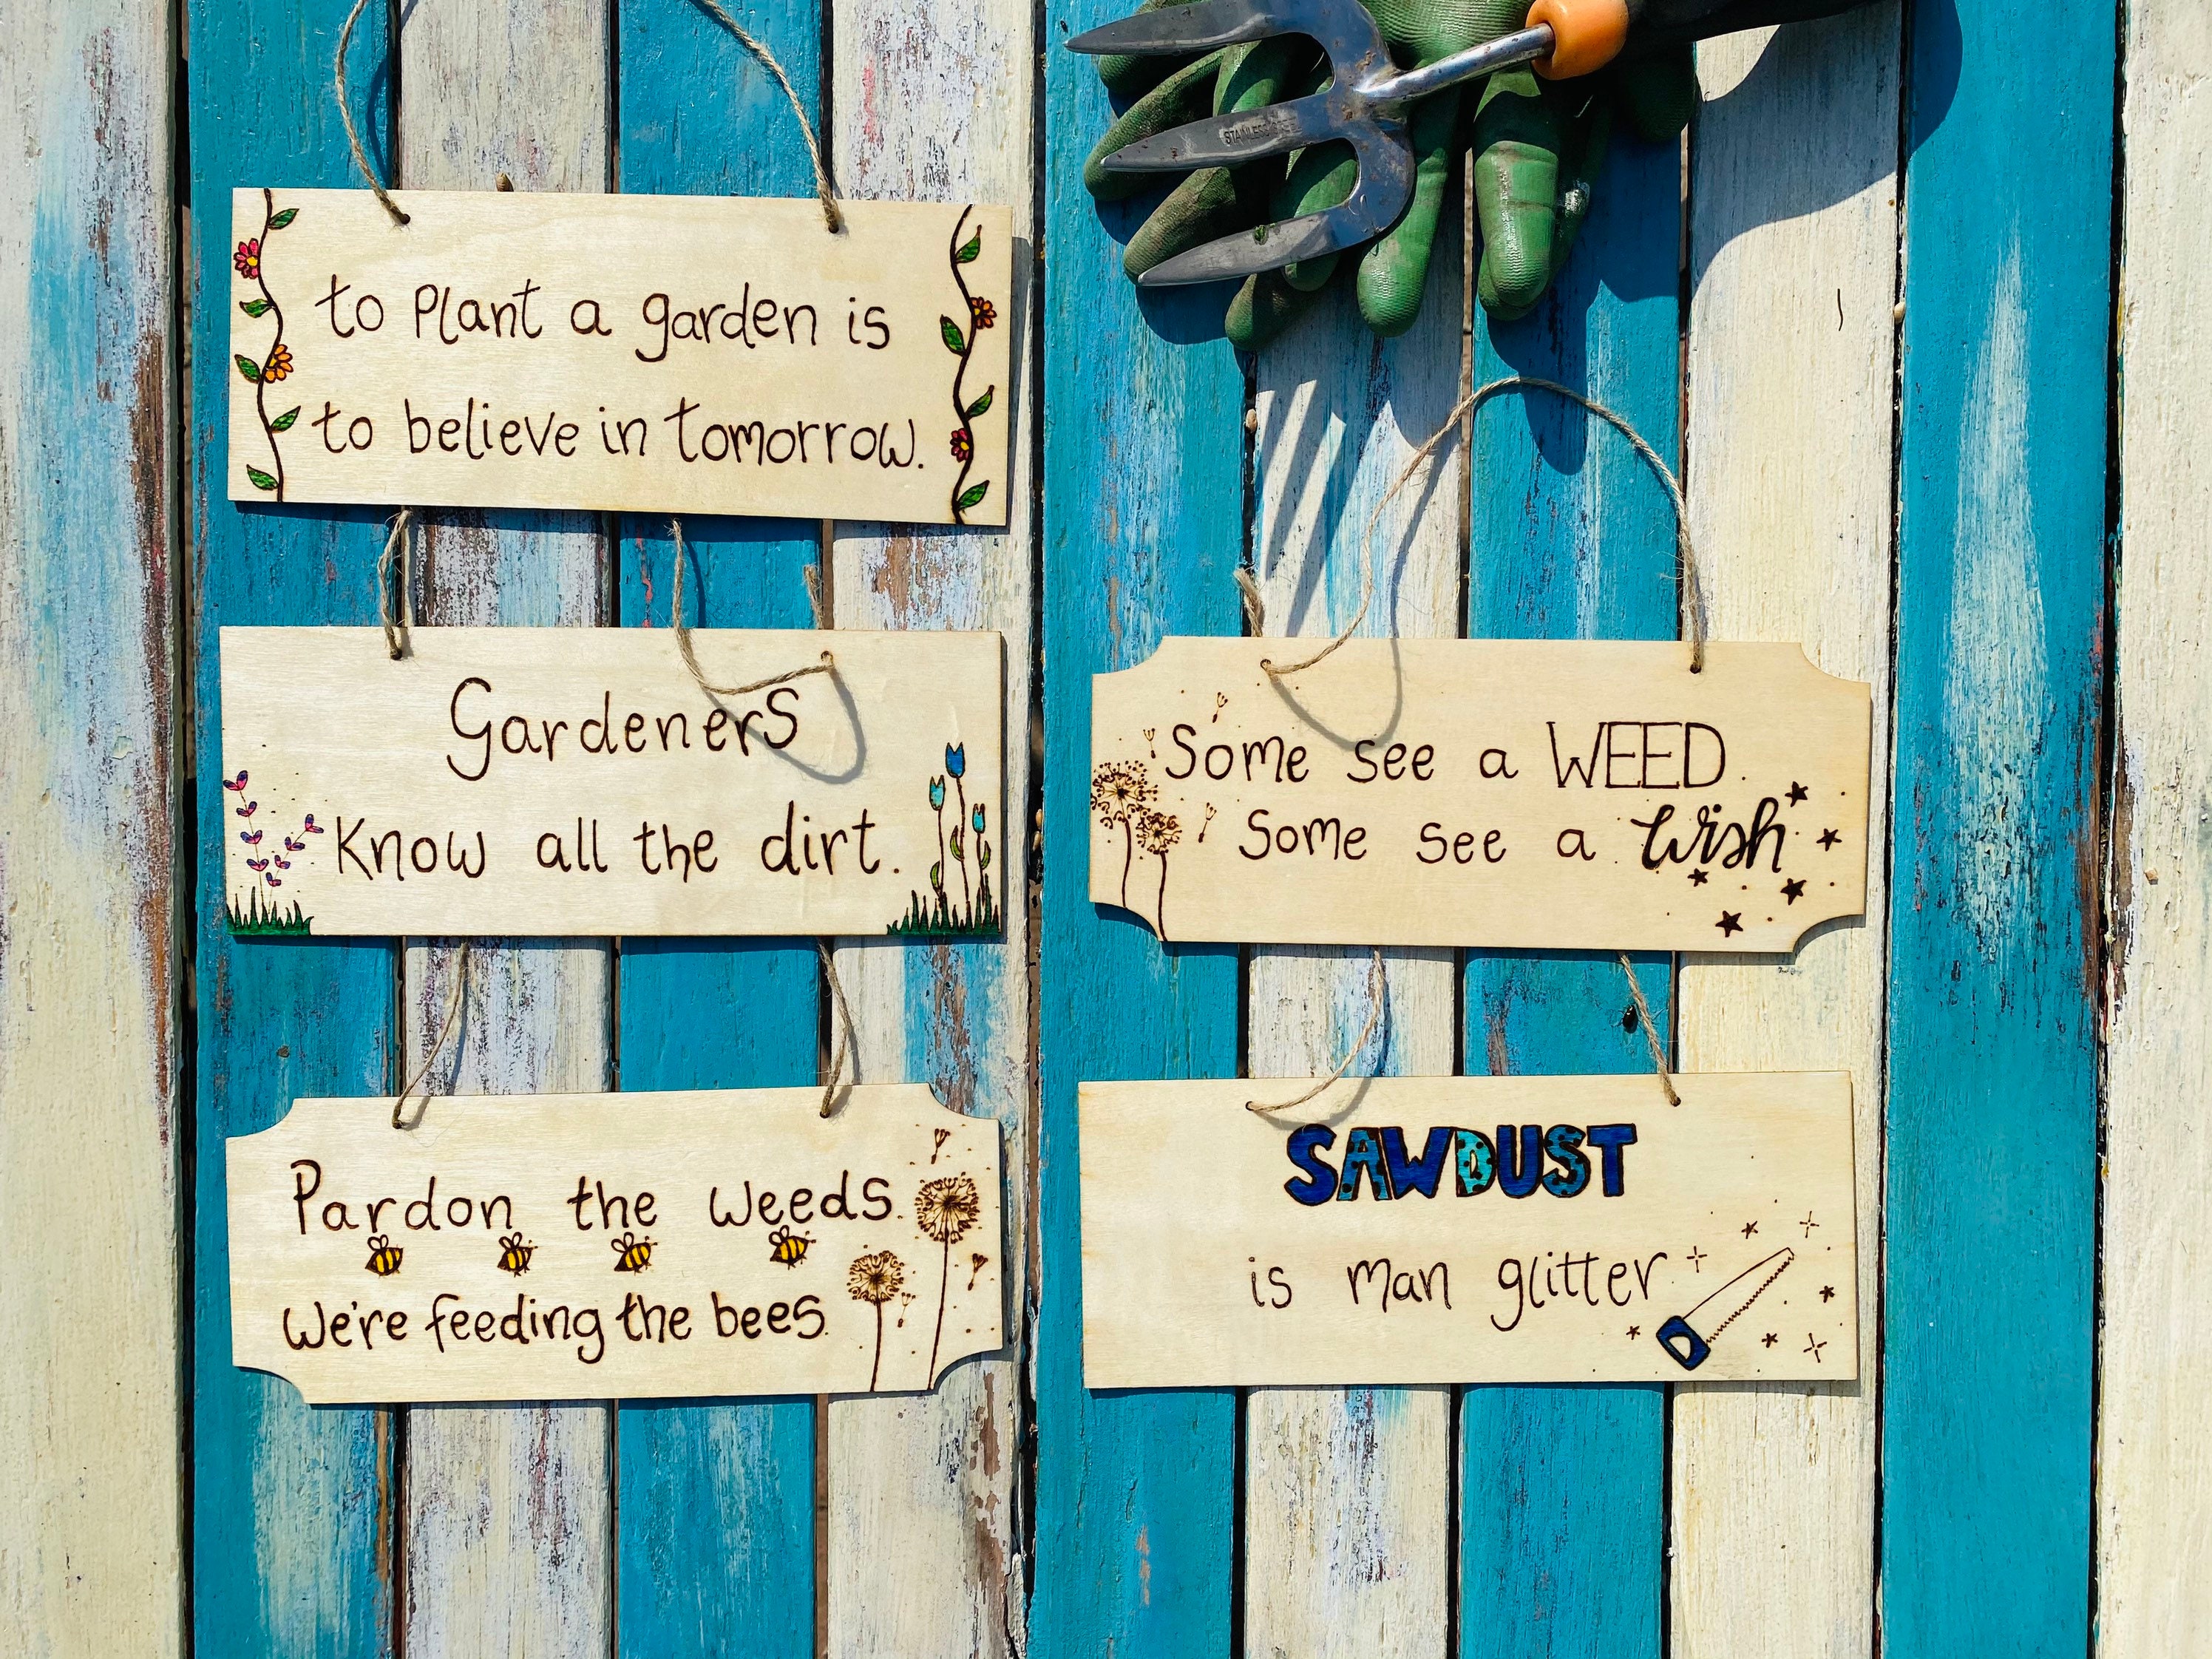 STAINLESS
to Plant a garden is
to believe in tomorrow.
Gardeners
Know all the dirt.
Pardon the weeds
We're feeding the bees
Some see a WEED.
Some see a Wish
SAWDUST
is man glitter